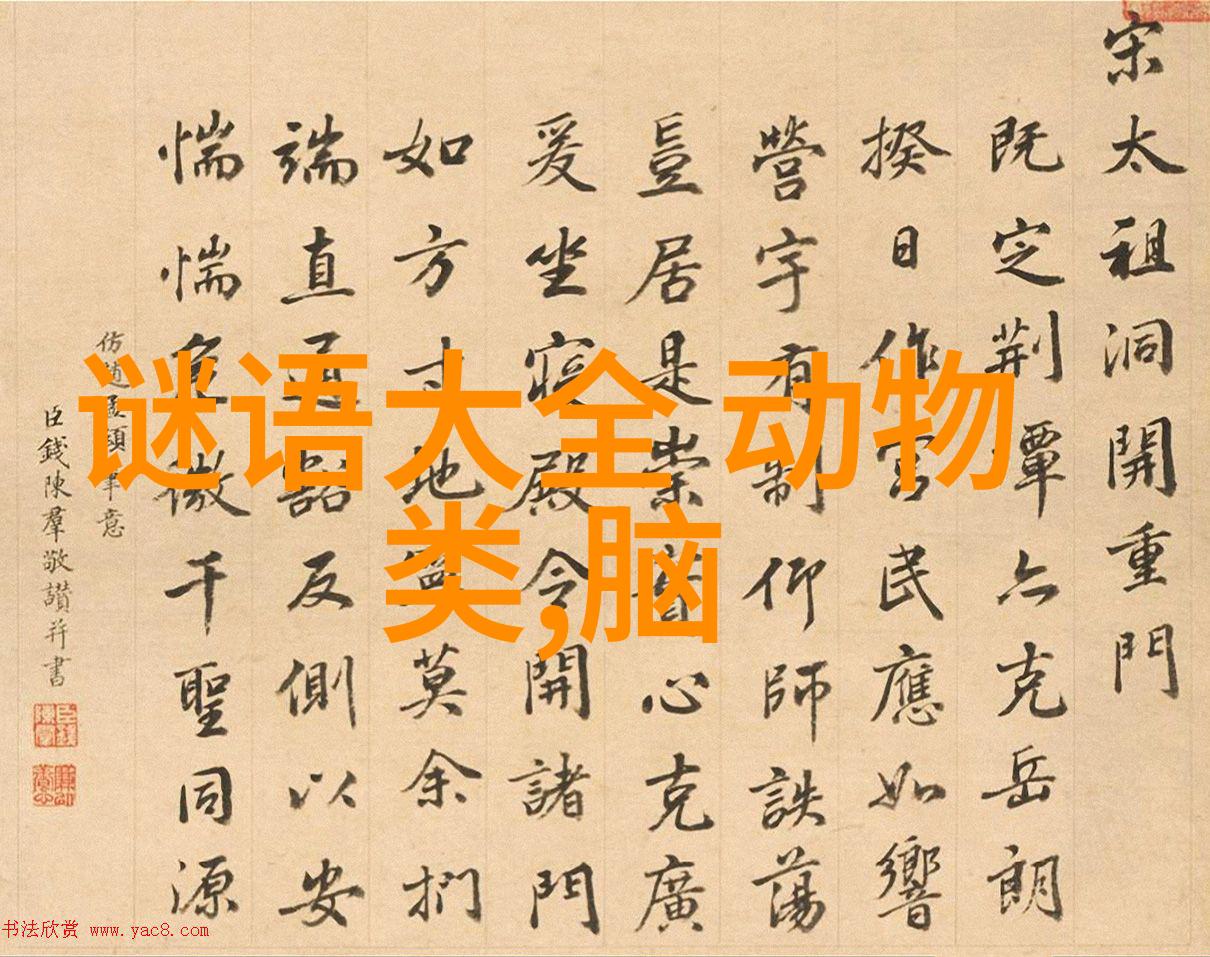 谜语大全 动物
类,脑
宋太祖洞開重門
既定荆覃六克岳朗
揆日作宫民應如響
營宇有制仰師詄蕩
豈居是崇心克廣
爰坐寢殿令開諸門
如方寸地莫余捫
端直通豁反側以安
惴惴危微千聖同源
仿趙孟頫筆意
臣錢陳羣敬讃并書
书法欣赏 www.yac8.com